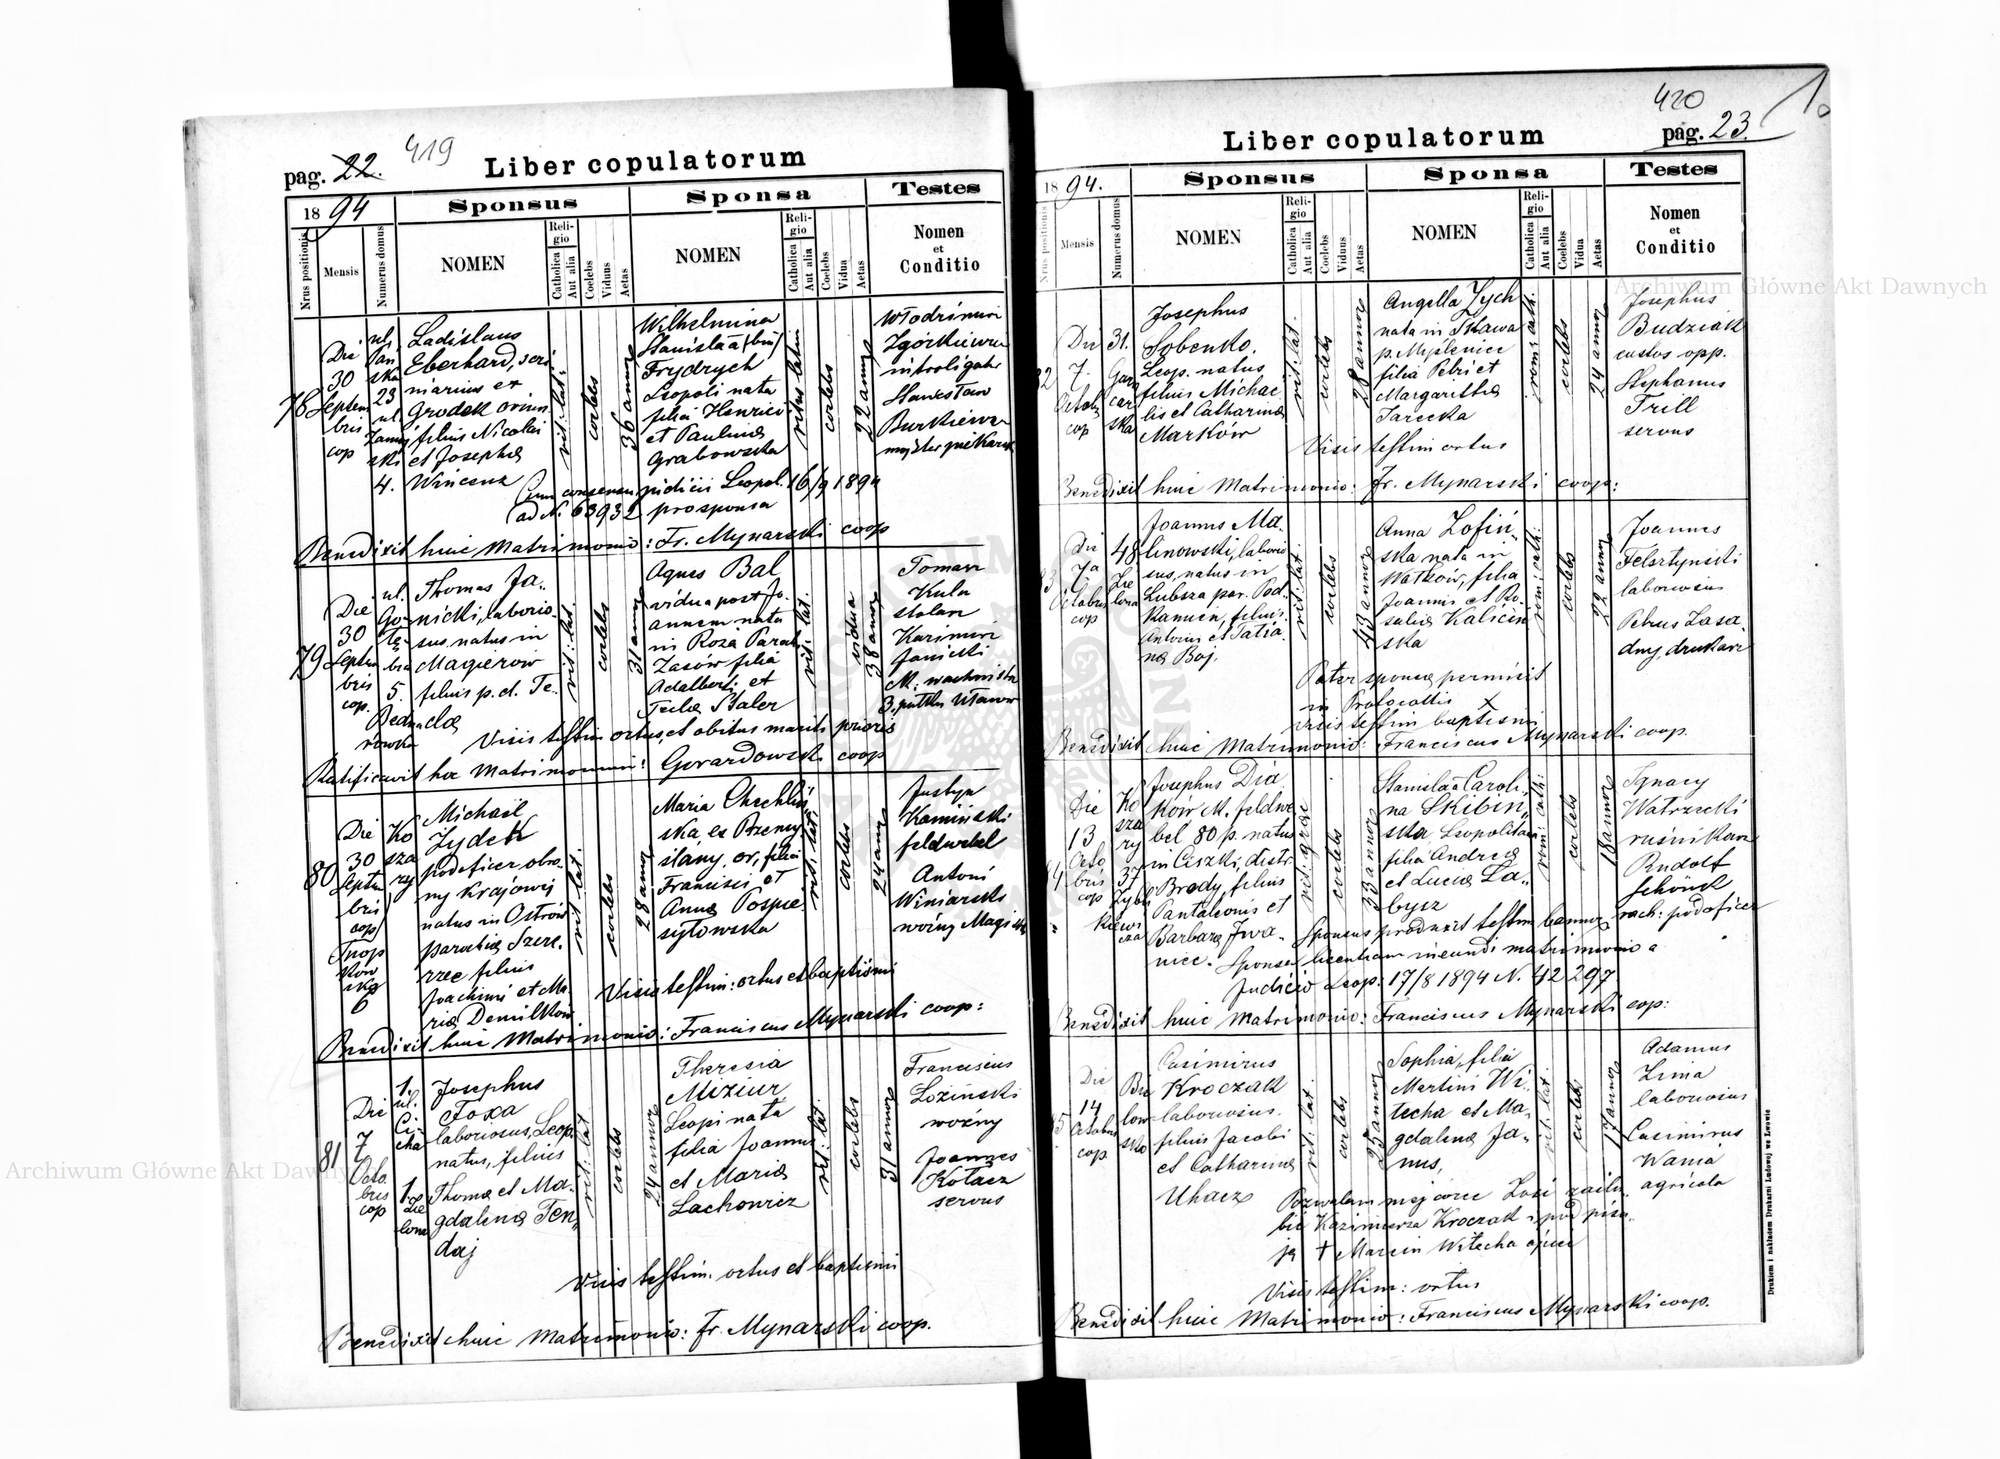 419
pag. 22.
Liber copulatorum
18 94
Sponsus
Sponsa
Testes
Nrus positionis
Mensis
Numerus domus
NOMEN
Religio
Catholica
Aut alia
Coelebs
Viduus
Aetas
NOMEN
Religio
Catholica
Aut alia
Coelebs
Vidua
Aetas
Nomen
et
Conditio
78
Die
30
Septem
bris
cop
ul.
Pań
ska
23
ul.
Zamoj
ski
4.
Ladislaus
Eberhard, scri
niarius et
Grodek oriun
filius Nicolai
et Josepha
Wincenz
rit: lat:
coelebs
36 annor
Wilhelmina
Stanislaa (bis)
Frydrych
Leopoli nata
filia Henrici
et Paulina
Grabowska
ritus latin
coelebs
22 annor
Włodzimirz
Zgórkiewicz
introligator
Stanisław
Burkiewicz
majster piekarsk
Cum consensu judicii Leopol. 16/9 1894
ad N. 63932 pro sponsa
Benedixit huic Matrimonio: Fr. Mynarski coop
79
Die
30
Septem
bris
cop.
ul.
Go
łę
bia
5.
Thomas Ja-
nicki, laborio
sus, natus in
Magierow
filius p. d. Te.
Bednarowska
rit: lat:
coelebs
31 annor
Agnes Bal
vidua post Jo.
annem nata
in Roza Paroch
Zasów filia
Adalberti et
Tecla Staler
rit: lat.
vidua
38 annor
Tomasz
Kula
stolarz
Kazimirz
Janicki
M. wachmistrz
3. pułku Ułanów
Visis testim ortus, et obitus mariti prioris
Ratificavit hoc Matrimonium: Gerardowski coop
80
Die
30
Septem
bris
cop
Ko
sza
ry
6
Michael
Zydek
podoficer obro
ny krajowej
natus in Ostrów
parochia Szcze.
rzec filius
Joachimi et Ma.
ria Demilków
rit lat.
coelebs
28 annor
Maria Chechliń
ska ex Przemy
ślany, or, filia
Francisci et
Anna Pospie
szyłowska
rit: lat:
coelebs
24 annor
Justyn
Kamiński
feldwebel
Antoni
Winiarski
woźny Magistr
Visis testim: ortus et baptismi
Benedixit huic Matrimonio: Franciscus Mynarski coop:
81
Die
7
Octo
bris
cop
1.
ul.
Ci
cha
1.
Zie
lona
Josephus
Foxa
laboriosus, Leop.
natus, filius
Thoma et Ma.
gdalena Fen„
daj
rit: lat
coelebs
24 annor
Theresia
Miziur
Leopi nata
filia Joannis
et Maria
Lachowicz
rit: lat.
coelebs
31 annor
Franciscus
Loziński
woźny
Joannes
Kołacz
servus
Visis testim. ortus et baptismi
Benedixit huic Matrimonio: Fr. Mynarski coop.
420
pag. 23.
Liber copulatorum
18 94.
Sponsus
Sponsa
Testes
Nrus positionis
Mensis
Numerus domus
NOMEN
Religio
Catholica
Aut alia
Coelebs
Viduus
Aetas
NOMEN
Religio
Catholica
Aut alia
Coelebs
Vidua
Aetas
Nomen
et
Conditio
Die
7.
Octob
cop
31.
Gar
car
ska
Josephus
Sobenko.
Leop. natus
filius Michae
lis et Catharina
Marków
rit: lat.
coelebs
28 annor
Angella Zych
nata in Tława
p. Myślenice
filia Petri et
Margaritha
Jarecka
rom: cath.
coelebs
24 annor
Josephus
Budziak
custos opp.
Stephanus
Trill
servus
Visis testim ortus
Benedixit huic Matrimonio: Fr. Mynarski coop:
Die
7a
Octobris
cop
48
Zie
lona
Joannes Ma.
linowski, laborio
sus, natus in
Lubsza par. Pod.
kamien, filius
Antonii et Tatia.
na Boj.
rit: lat.
coelebs
43 annor
Anna Zofiń-
ska nata in
Wołków, filia
Joannis et Ro.
salia Kalicin
ska
rom: cath:
coelebs
22 annor
Joannes
Felsztyński
laboriosus
Petrus Zasa.
dny, drukarz
Pater sponsa permisit
in Protocollis X
visis testim baptismi
Benedixit huic Matrimonio: Franciscus Mynarski coop.
Die
13
Octo
bris
cop
Ko
sza
ry
37
Zybli
kiewi
cza
Josephus Dia
ków M. feldwe
bel 80 p. natus
in Ciszki, distr.
Brody, filius
Pantaleonis et
Barbara Iwa.
nice.
rit: graec
coelebs
33 annor
Stanislaa Caroli
na Skibiń„
ska Leopolitana
filia Andrea
et Lucia Ła„
bysz
rom: cath:
coelebs
18 annor
Ignacy
Watrzecki
rusnikarz
Rudolf
Schönck
rach: podoficer
Sponsus produxit testim bannor,
Sponsa licentiam ineundi matrimonio a
Judicio Leop: 17/8 1894 N. 42297
Benedixit huic Matrimonio: Franciscus Mynarski cop:
Die
14
Octobris
cop
Bie
low
ska
Casimirus
Kroczak
laboriosus.
filius Jacobi
et Catharina
Uhacz
rit: lat.
coelebs
25 annor
Sophia, filia
Martini Wi.
techa et Ma.
gdalena Ja„
nus,
rit: lat.
coelebs
17 annor
Adamus
Zima
laboriosus
Casimirus
Wania
agricola
Pozwalam mej córce Zosi zaślu.
bić Kazimierza Kroczak i podpisu.
ję + Marcin Witecha ojciec
Visis testim: ortus
Benedixit huic Matrimonio: Franciscus Mynarski coop.
Drukiem i nakładem Drukarni Ludowej we Lwowie
Archiwum Główne Akt Dawnych
Archiwum Główne Akt Dawnych